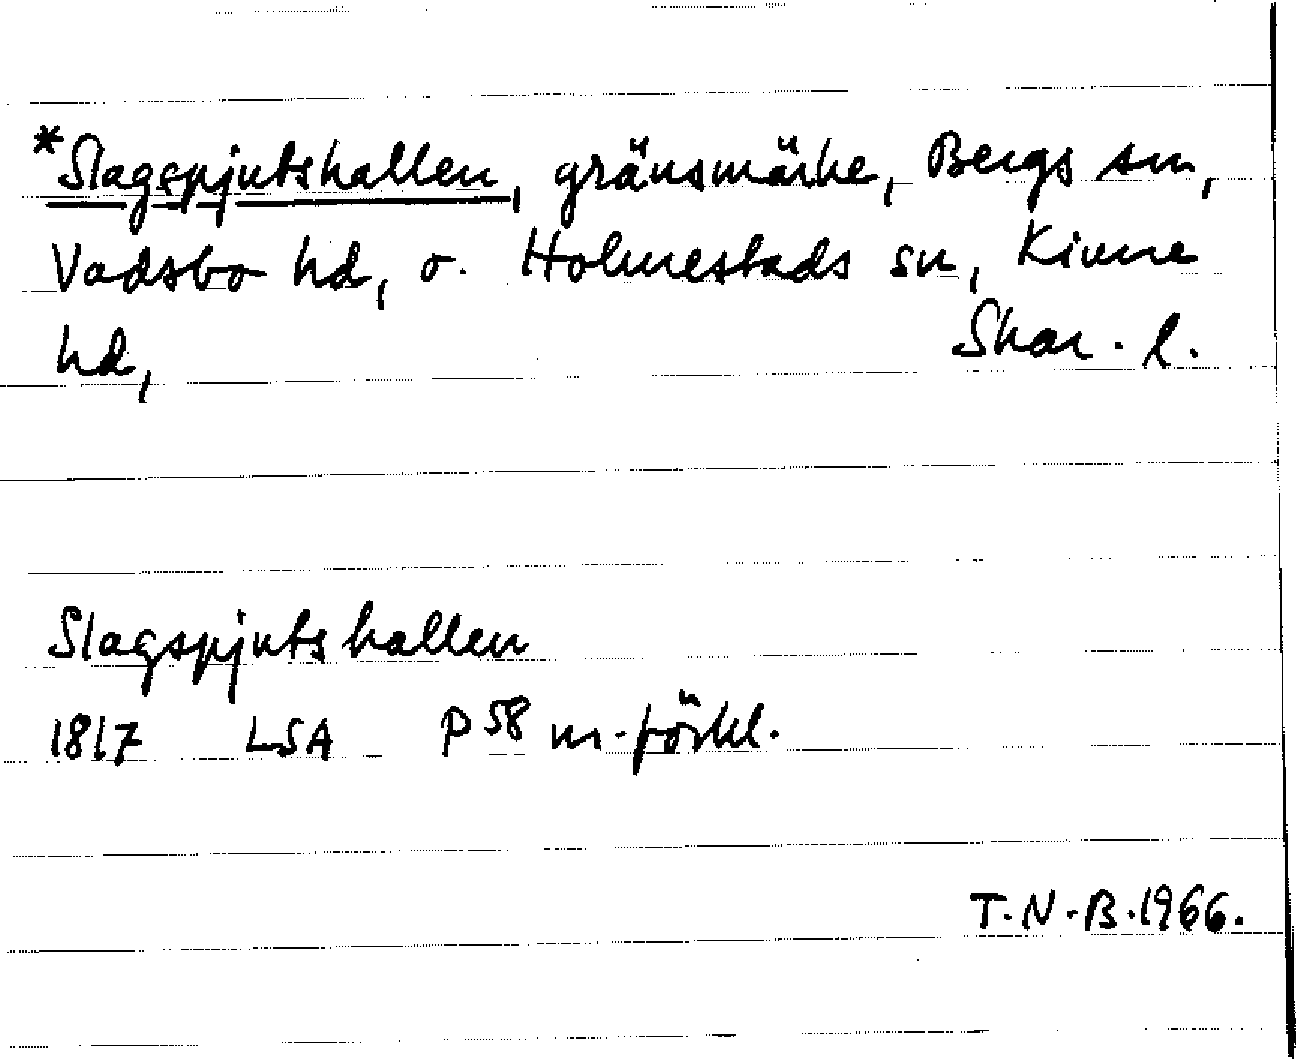 *Slagspjutshallen, gränsmärke, Bergs sn,
Vadsbo hd, o. Holmestads sn, Kinne
hd, Skar. l.
Slagspjutshallen
1817 LSA P 58 m. förkl.
T.N.B. 1966.